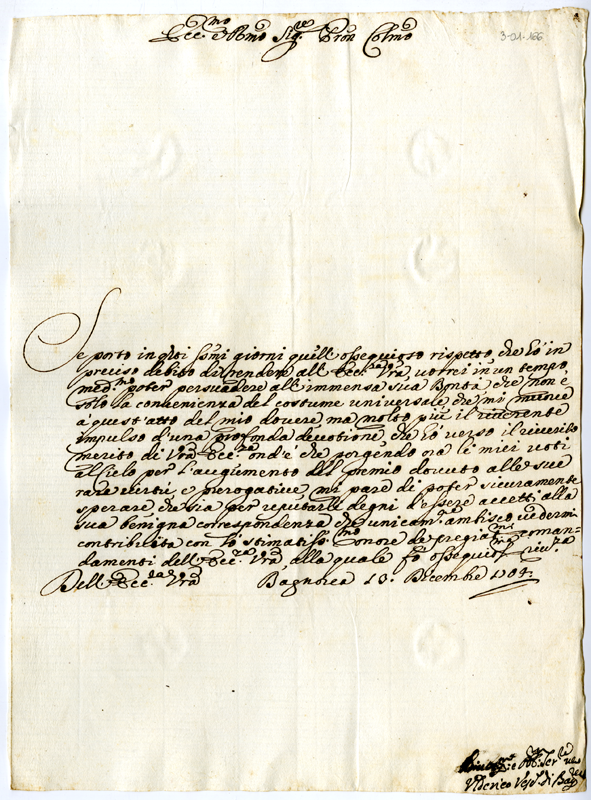 Ecc.mo Rmo Sig.re Pron Colmo
3-01-166
Se porto in q̃sti ssmi giorni quell'ossequioso rispetto, che hò in
preciso debito di rendere all'Ecc.za Vrã vorrei in un tempo
med.mo poter persuadere all'immensa sua Bontà che non è
solo la convenienza del costume universale, che mi muove
a quest'atto del mio dovere, ma molto più il riverente
impulso d'una profonda devotione, che hò verso il riverito
merito di Vrã Ecc.za ond'è che porgendo ora li miei voti
al Cielo per l'augumento del premio dovuto alle sue
rare virtù, e prerogative, mi pare di poter sicuramente
sperare, che sia per reputarli degni d'essere accetti alla
sua benigna correspondenza che unicam.te ambisco vedermi
contribuita con lo stimatiss.mo onore de pregiat.mi coman-
damenti dell'Ecc.za Vrã, alla quale fò ossequios.ma riv.za
Dell'Ecc.za Vrã Bagnorea 13. Dicembre 1704.
Ser.re
Vlderico Vesc.o di Bag.a